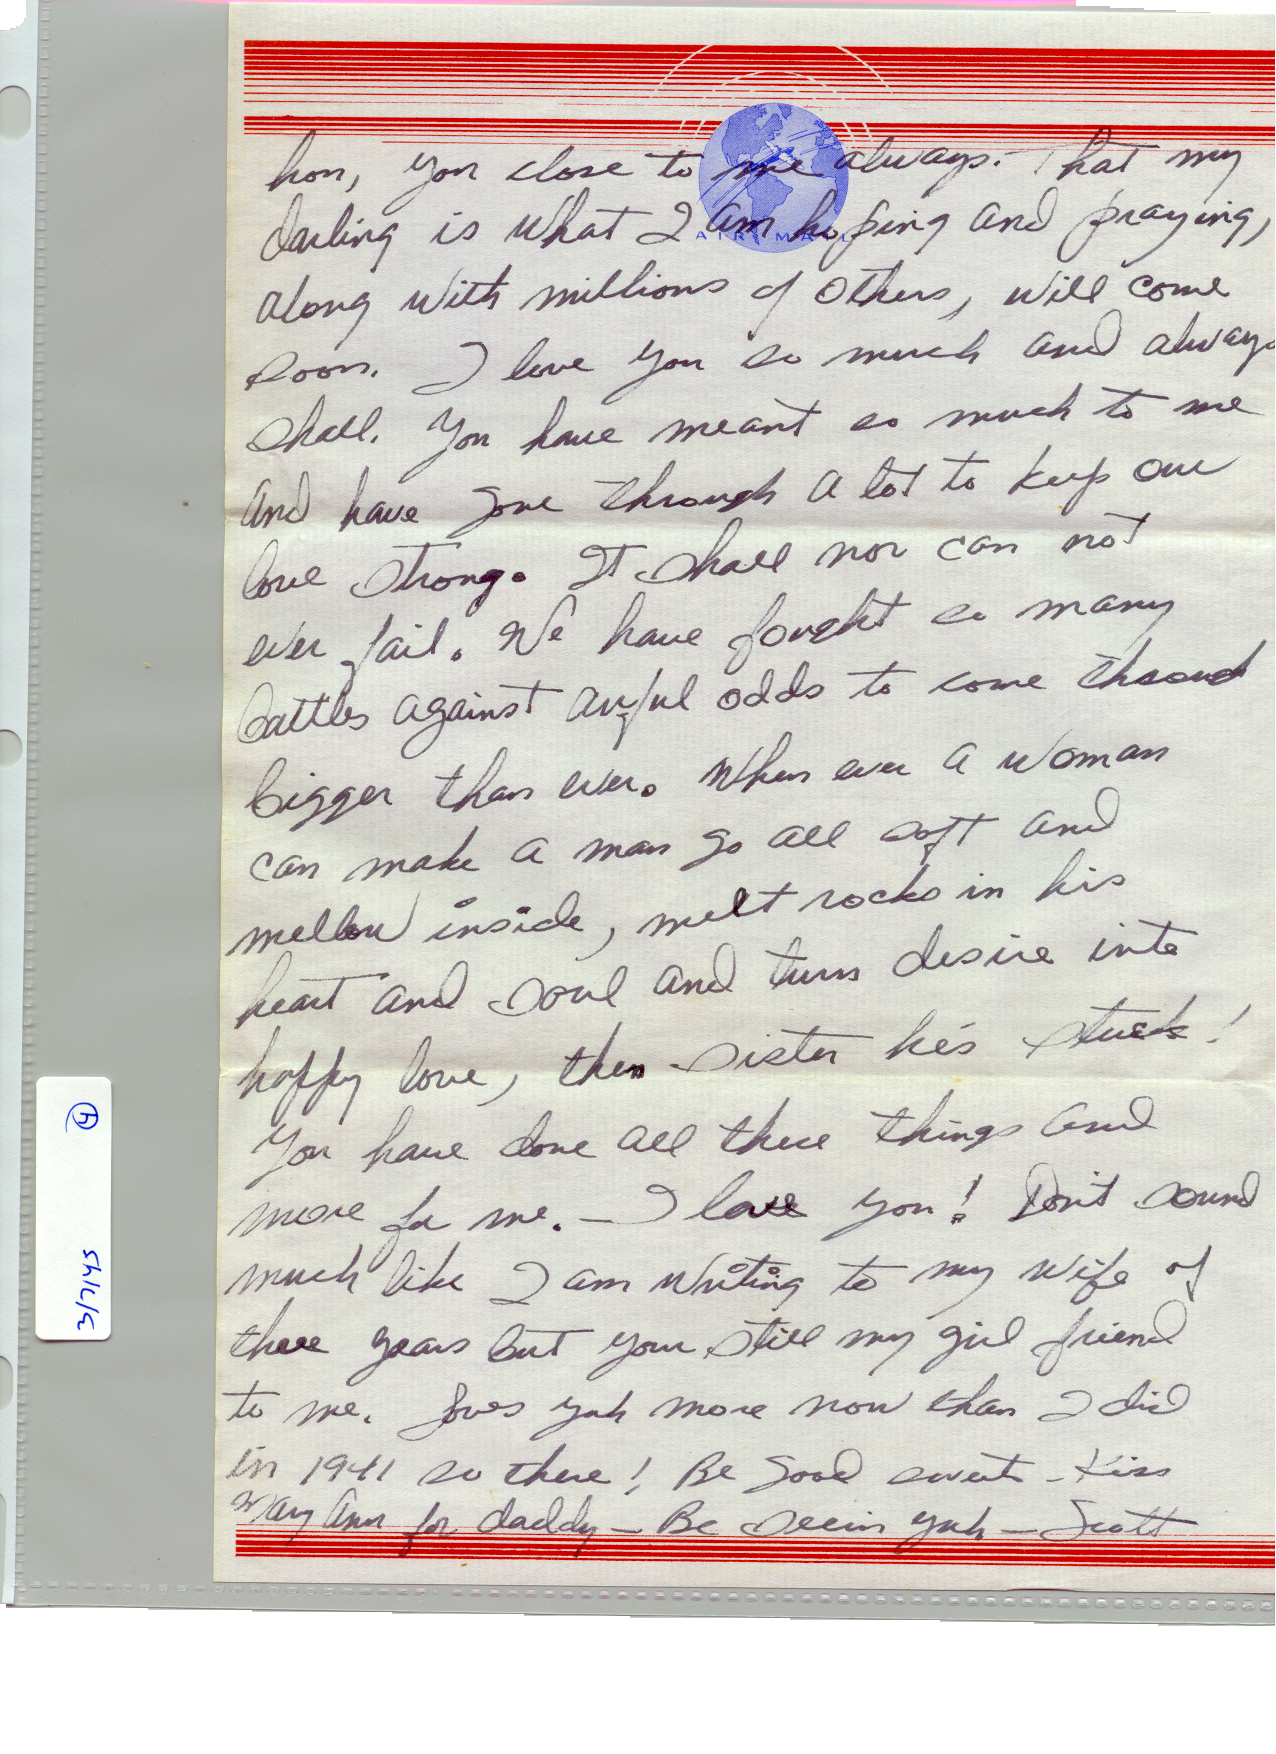 AIR MAIL
hon, you close to me always. – That my
darling is what I am hoping and praying,
along with millions of others, will come
soon. I love you so much and always
shall. You have meant so much to me
and have gone through a lot to keep our
love strong. It shall nor can not
ever fail. We have fought so many
battles against awful odds to come through
bigger than ever. When ever a woman
can make a man go all soft and
mellow inside, melt rocks in his
heart and soul and turns desire into
happy love, then sister he's stuck!
You have done all these things and
more for me. – I love you! Don't sound
much like I am writing to my wife of
three years but your still my girl friend
to me. Loves yuh more now than I did
in 1941 so there! Be good sweet – Kiss
Mary Ann for daddy – Be seein yuh – Scott
4
3/7/45